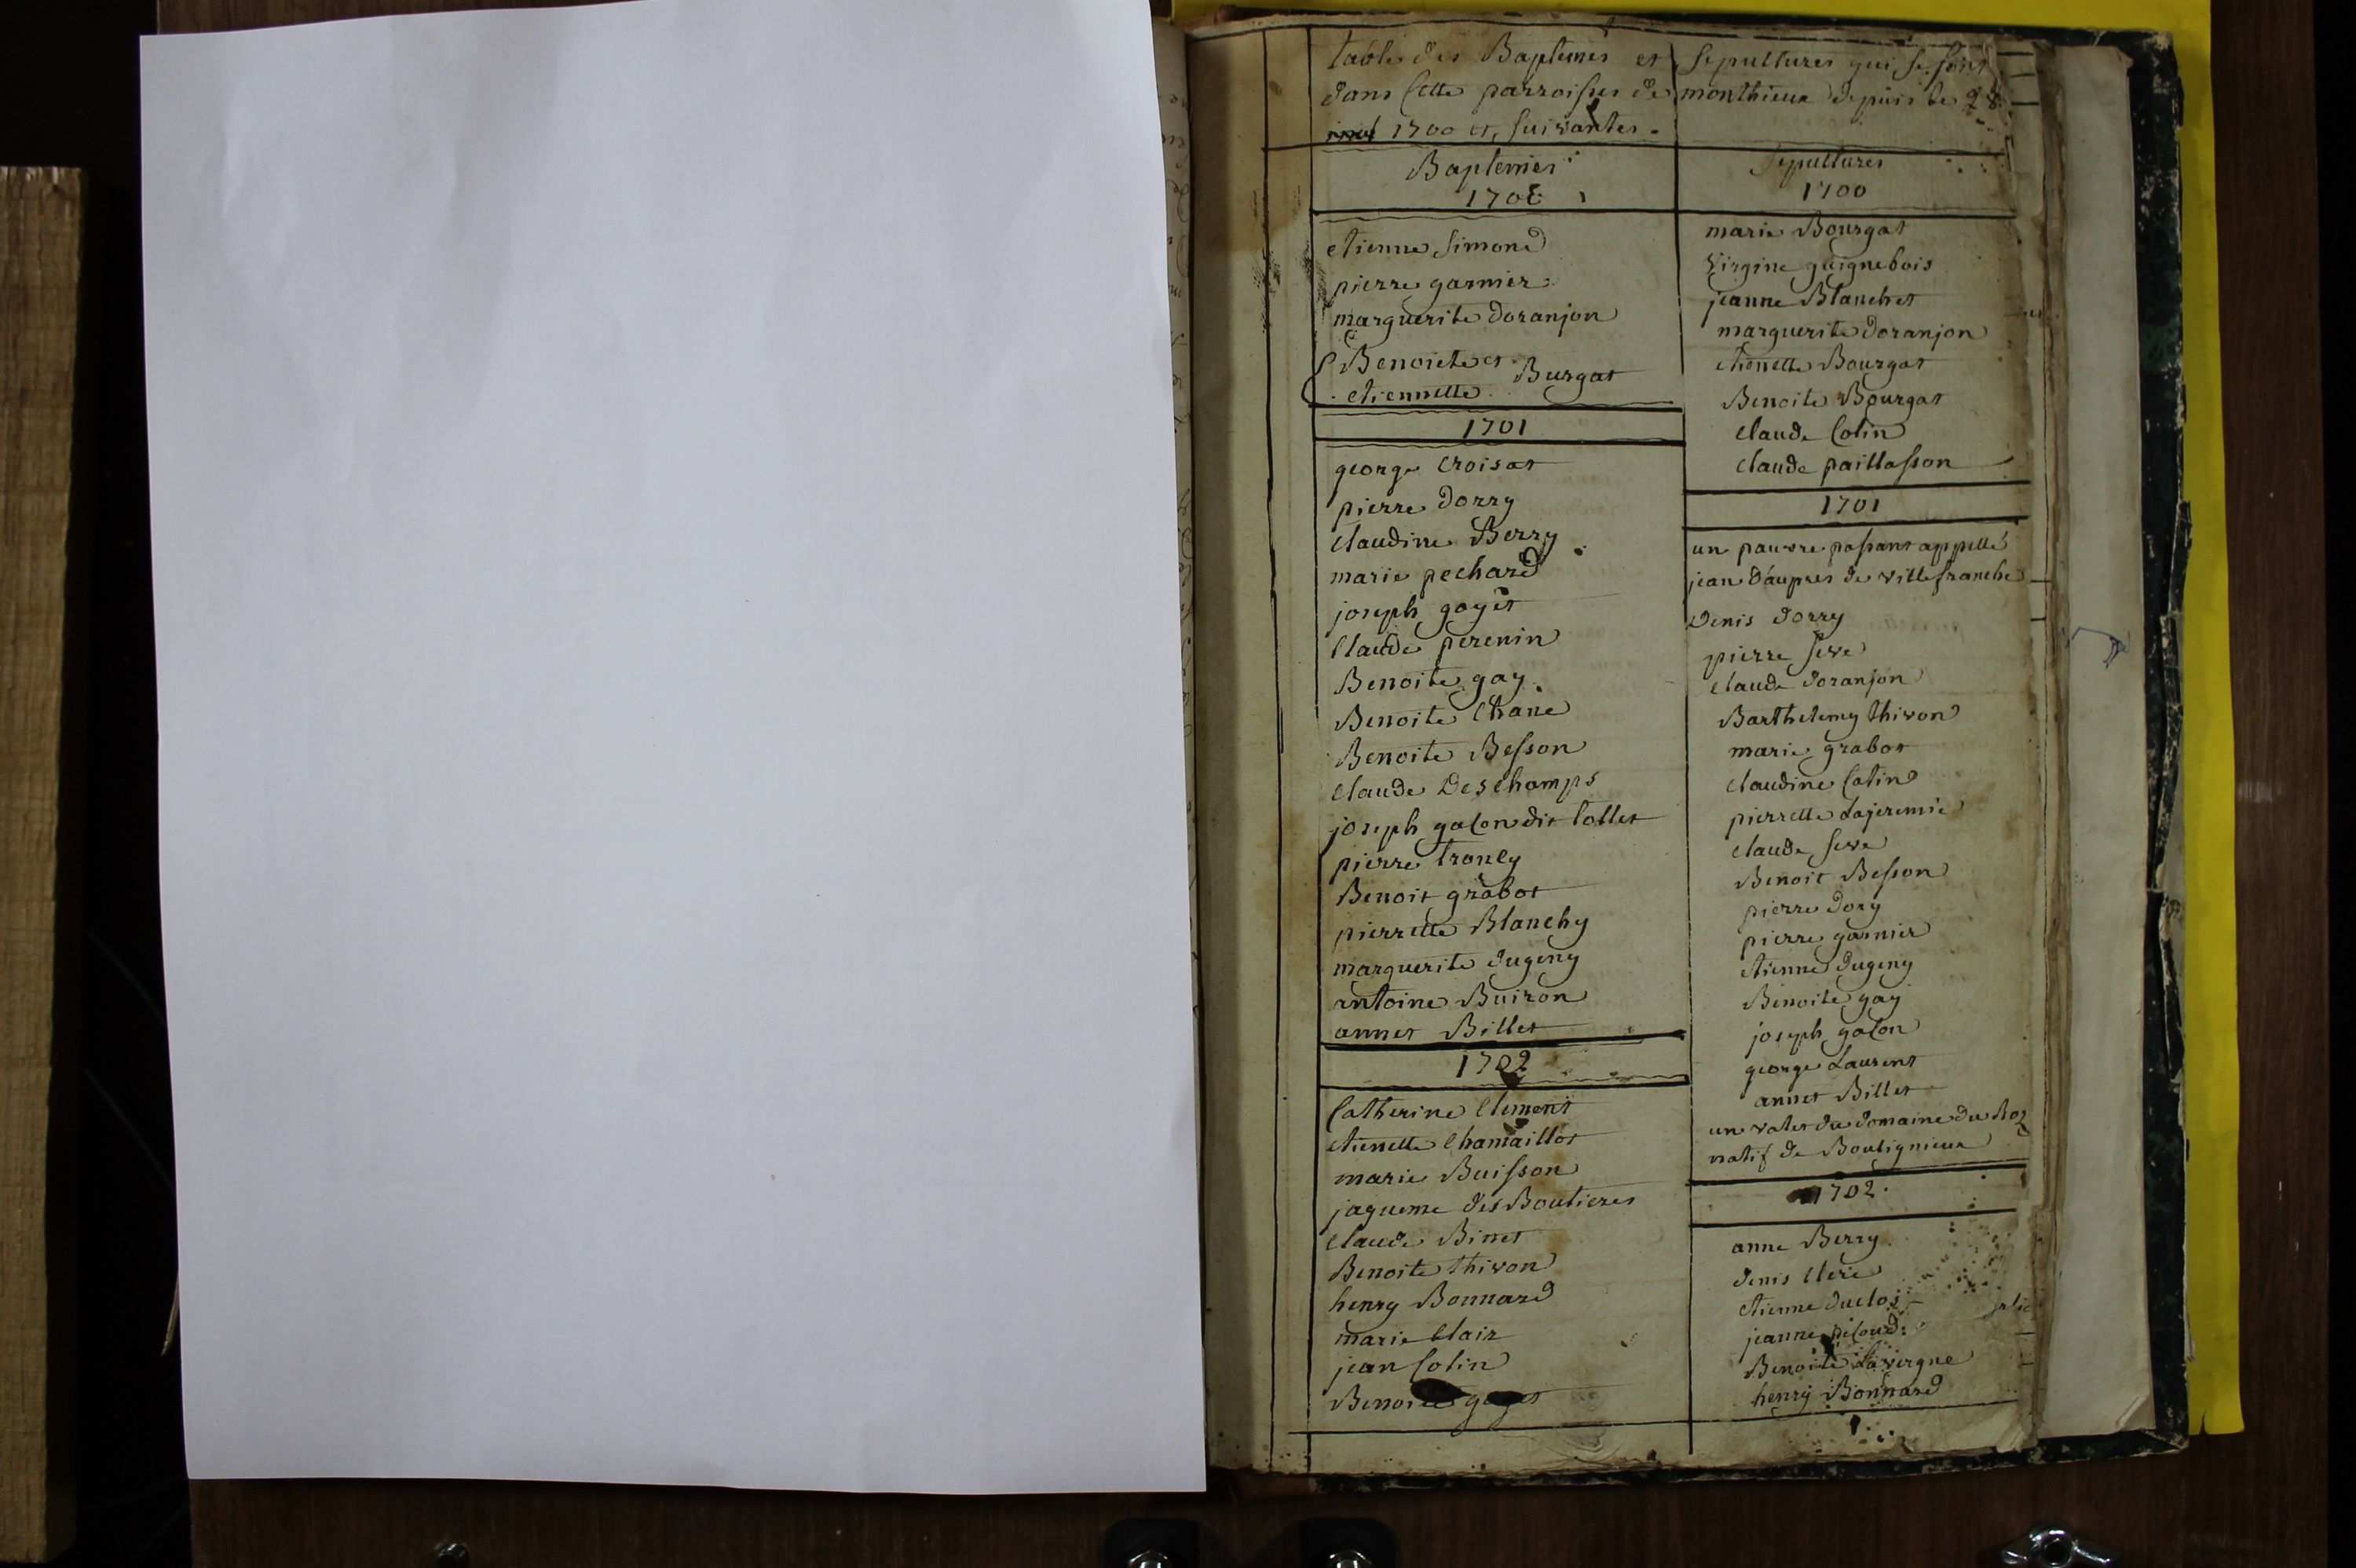 table des Baptemes et Sepultures qui se sont
dans cette parroisses de monthieux depuis le 28
1700 et suivantes.
Baptemes
1700
etienne Simond
pierre garnier
marguerite Doranjon
Benoite et
etiennette Burgat
1701
george Croisat
pierre Dorry
claudine Berry
marie pechard
joseph goyet
Claude perenin
Benoite gay
Benoite Chane
Benoite Besson
claude Deschamps
joseph galon dit Collet
pierre troncy
Benoit grabot
pierrette Blanchy
marguerite Dugeny
antoine Buiron
annet Billet
1702
Catherine Clement
etienette Chamaillot
marie Buisson
jaqueme des Boutieres
Claude Binet
Benoite thivon
henry Bonnard
marie Clair
jean Colin
Sepultures
1700
marie Bourgat
Virgine guignebois
jeanne Blanchet
marguerite Doranjon
etienette Bourgat
Benoite Bourgat
claude Colin
claude paillasson
1701
un pauvre passant appellé
jean d'aupres de villefranche
Denis Dorry
pierre seve
claude Doranjon
Barthelemy thivon
marie grabot
claudine Catin
pierrette Lajeremie
claude seve
Benoit Besson
pierre Dory
pierre garnier
etienne Dugeny
Benoite gay
joseph galon
george Laurent
annet Billet
un valet du domaine du
natif de Bouligneux
1702
anne Berry
denis Clerc
etienne duclos
jeanne piloud
Benoite Lavergne
henry Bonnard